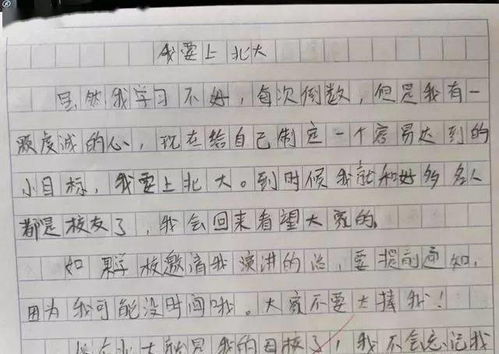 我要上北大
虽然我学习不好，每次倒数，但是我有一
颗虔诚的心，现在给自己制定一个容易达到的
小目标，我要上北大。到时候我就和好多名人
都是校友了，我会回来看望大家的。
如果学校邀请我演讲的话，要提前通知，
因为我可能没时间哦。大家不要太捧我！
北大就是我的母校了，我不会忘记我